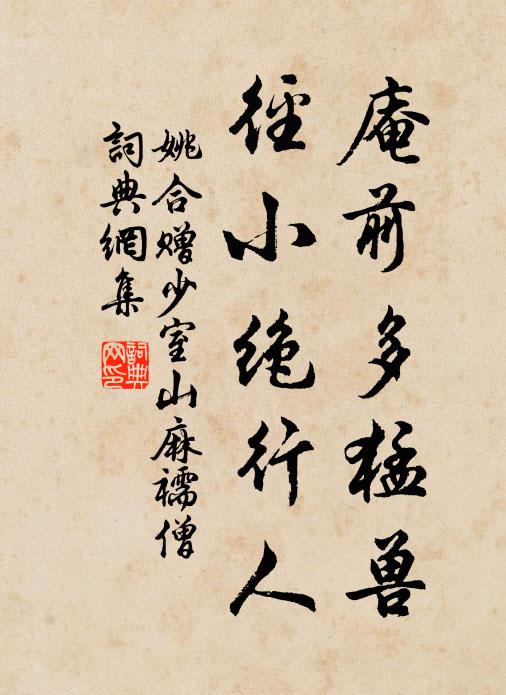 庵前多猛兽
径小绝行人
姚合赠少室山麻襦僧
詞典網集
詞典网印